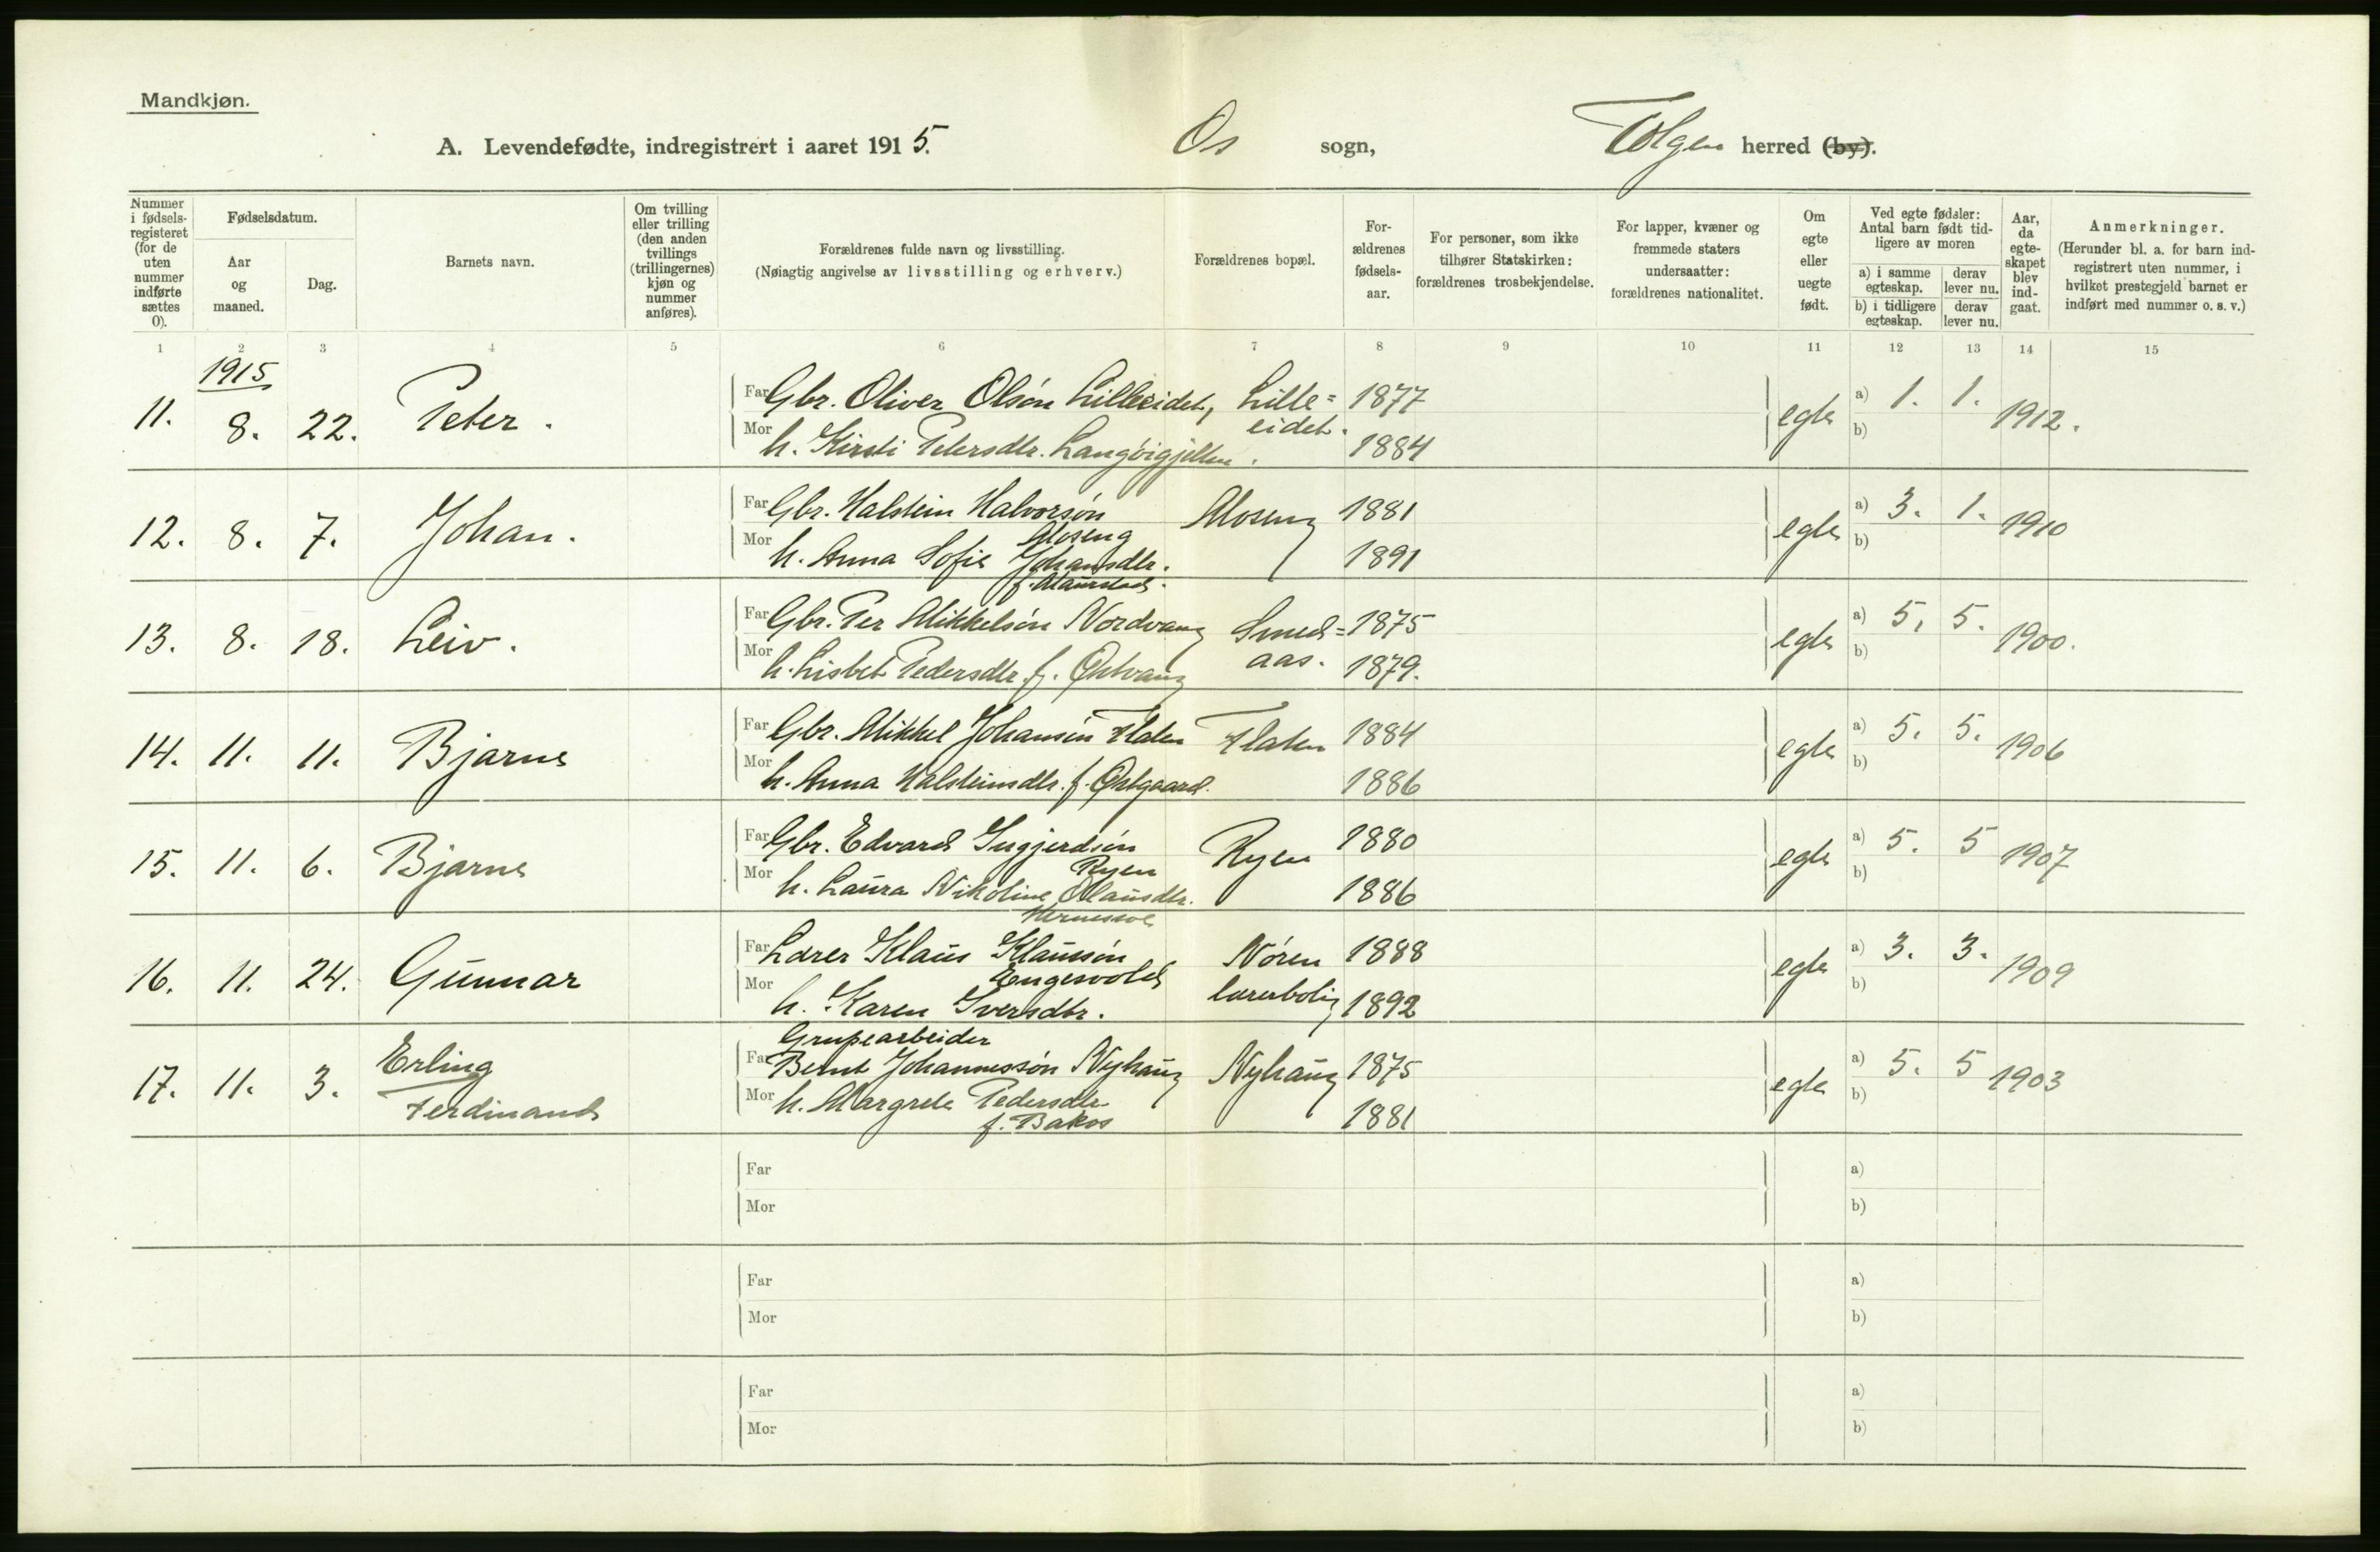 Mandkjøn.
A. Levendefødte, indregistrert i aaret 1915. Os sogn, Tolgen herred (by).
Nummer i fødsels-registeret (for de uten nummer indførte sættes 0).
Fødselsdatum.
Aar og maaned.
Dag.
Barnets navn.
Om tvilling eller trilling (den anden tvillings (trillingernes) kjøn og nummer anføres).
Forældrenes fulde navn og livsstilling.
(Nøiagtig angivelse av livsstilling og erhverv.)
Forældrenes bopæl.
For-ældrenes fødsels-aar.
For personer, som ikke tilhører Statskirken: forældrenes trosbekjendelse.
For lapper, kvæner og fremmede staters undersaatter: forældrenes nationalitet.
Om egte eller uegte født.
Ved egte fødsler: Antal barn født tid-ligere av moren
a) i samme egteskap. derav lever nu.
b) i tidligere egteskap. derav lever nu.
Aar, da egte-skapet blev ind-gaat.
Anmerkninger.
(Herunder bl. a. for barn ind-registrert uten nummer, i hvilket prestegjeld barnet er indført med nummer o. s. v.)
1 2 3 4 5 6 7 8 9 10 11 12 13 14 15
1915
11. 8. 22. Peter. Far Gbr. Oliver Olsön Lilleeidet, Lille= 1877 egte a) 1. 1. 1912.
Mor h. Kirsti Petersdtr. Langöigjelten. eidet. 1884 b)
12. 8. 7. Johan. Far Gbr. Halstein Halvorsön Moseng 1881 egte a) 3. 1. 1910
Moseng
Mor h. Anna Sofie Johansdtr. 1891 b)
13. 8. 18. Leiv. Far Gbr. Per Mikkelsön Nordvang Smed= 1875 egte a) 5. 5. 1900.
Mor h. Lisbet Pedersdtr. f. Östvang aas. 1879. b)
14. 11. 11. Bjarne Far Gbr. Mikkel Johansön Flaten Flaten 1884 egte a) 5. 5. 1906
Mor h. Anna Halsteinsdtr. f. Östgaard. 1886 b)
15. 11. 6. Bjarne Far Gbr. Edvard Ingjerdsön Ryen 1880 egte a) 5. 5 1907
Ryen
Mor h. Laura Nikoline Olausdtr. 1886 b)
16. 11. 24. Gunnar Far Lærer Klaus Klaussön Nören 1888 egte a) 3. 3. 1909
Engesvold
Mor h. Karen Iversdtr. lærerbolig 1892 b)
Grupearbeider
17. 11. 3. Erling Far Bernt Johannessön Nyhaug Nyhaug 1875 egte a) 5. 5 1903
Ferdinand Mor h. Margrete Pedersdtr. 1881 b)
f. Bakos
Far a)
Mor b)
Far a)
Mor b)
Far a)
Mor b)